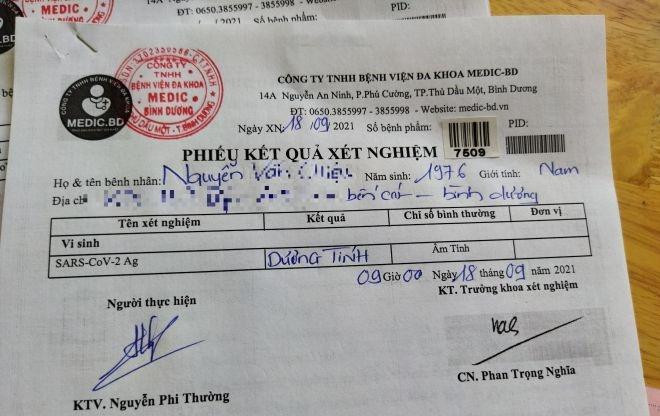 ĐT: 0650.3855997 - 3855998 - Website:
/2021 Số bệnh phẩm:
PID:
CÔNG TY TNHH BỆNH VIỆN ĐA KHOA
MEDIC.BD
CÔNG TY
TNHH
BỆNH VIỆN ĐA KHOA
MEDIC
BÌNH DƯƠNG
CÔNG TY TNHH BỆNH VIỆN ĐA KHOA MEDIC-BD
14A Nguyễn An Ninh, P.Phú Cường, TP.Thủ Dầu Một, Bình Dương
ĐT: 0650.3855997 - 3855998 - Website: medic-bd.vn
Ngày XN: 18/09/2021 Số bệnh phẩm: 7509 PID:
PHIẾU KẾT QUẢ XÉT NGHIỆM
Họ & tên bệnh nhân: Nguyễn Văn Năm sinh: 1976 Giới tính: Nam
Địa chỉ bến cát - bình dương
Tên xét nghiệm Kết quả Chỉ số bình thường Đơn vị
Vi sinh
SARS-CoV-2 Ag DƯƠNG TÍNH Âm Tính
09 Giờ 00 Ngày 18 tháng 09 năm 2021
Người thực hiện KT. Trưởng khoa xét nghiệm
KTV. Nguyễn Phi Thường CN. Phan Trọng Nghĩa